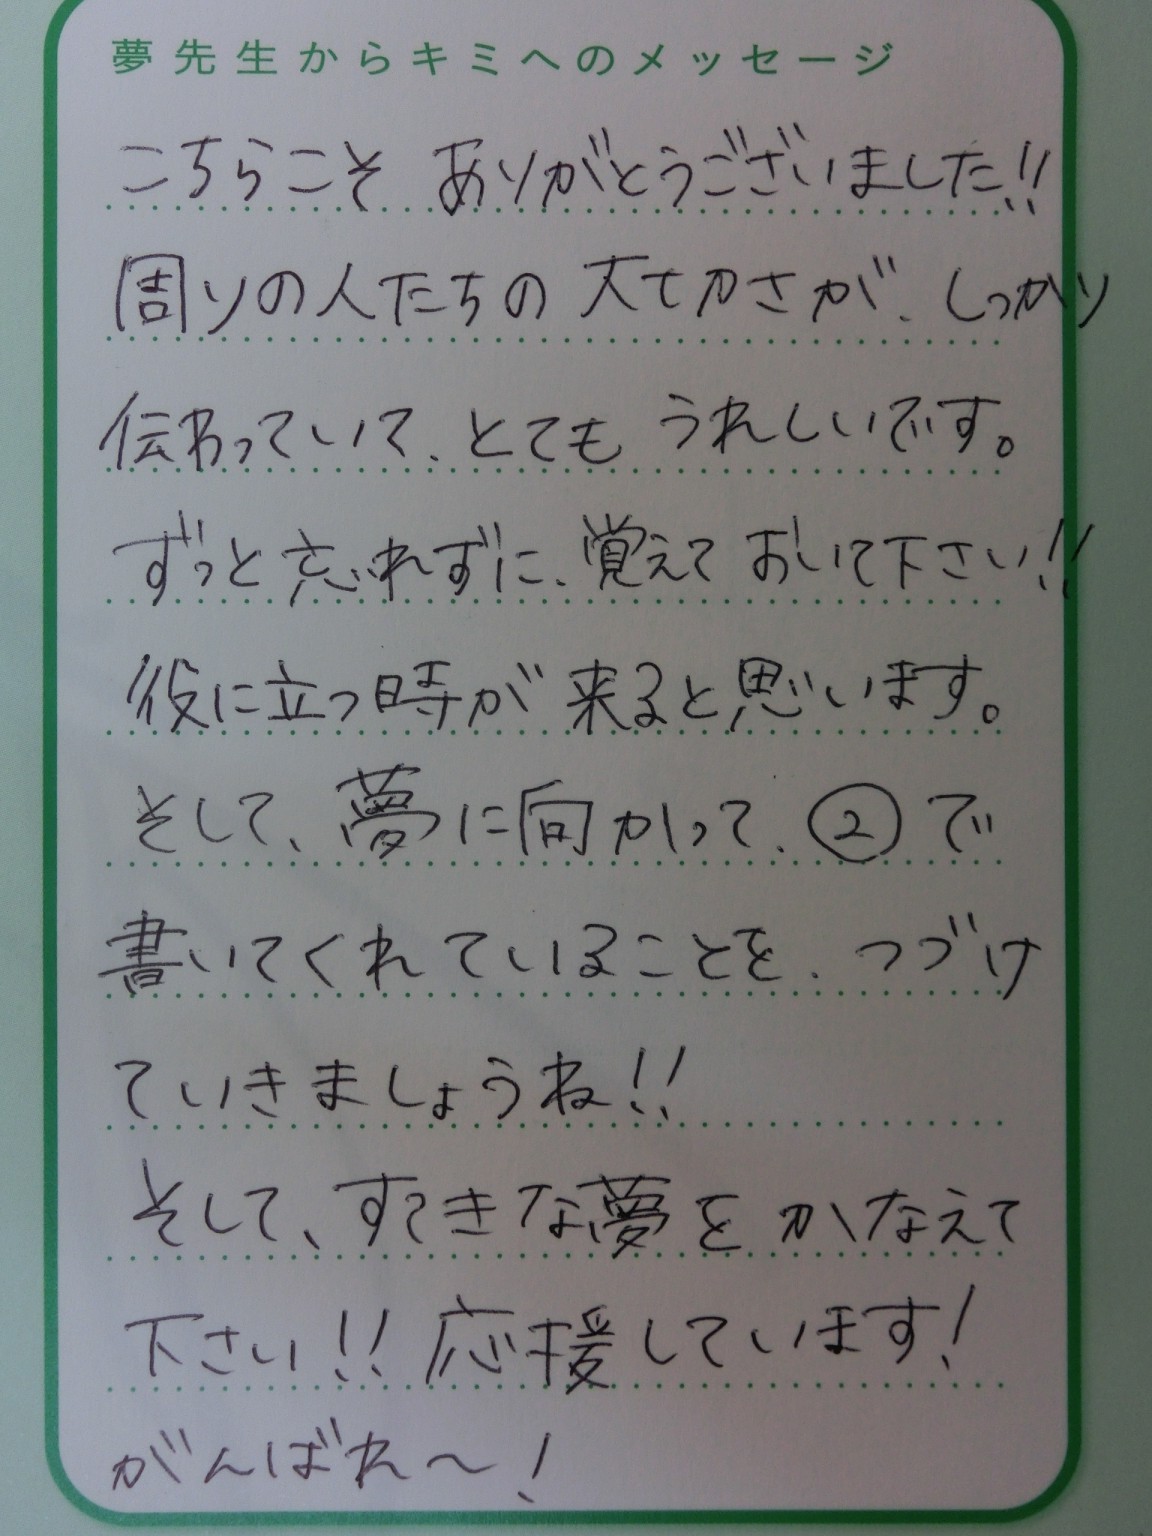 夢先生からキミへのメッセージ
こちらこそ ありがとうございました!!
周りの人たちの 大せかさが、しっかり
伝わっていて、とても うれしいです。
ずっと忘れずに、覚えて おいて下さい!!
役に立つ時が 来ると思います。
そして、夢に向かって、②で
書いてくれていることを、つづけ
ていきましょうね!!
そして、すてきな夢を かなえて
下さい!! 応援しています!
がんばれ〜!